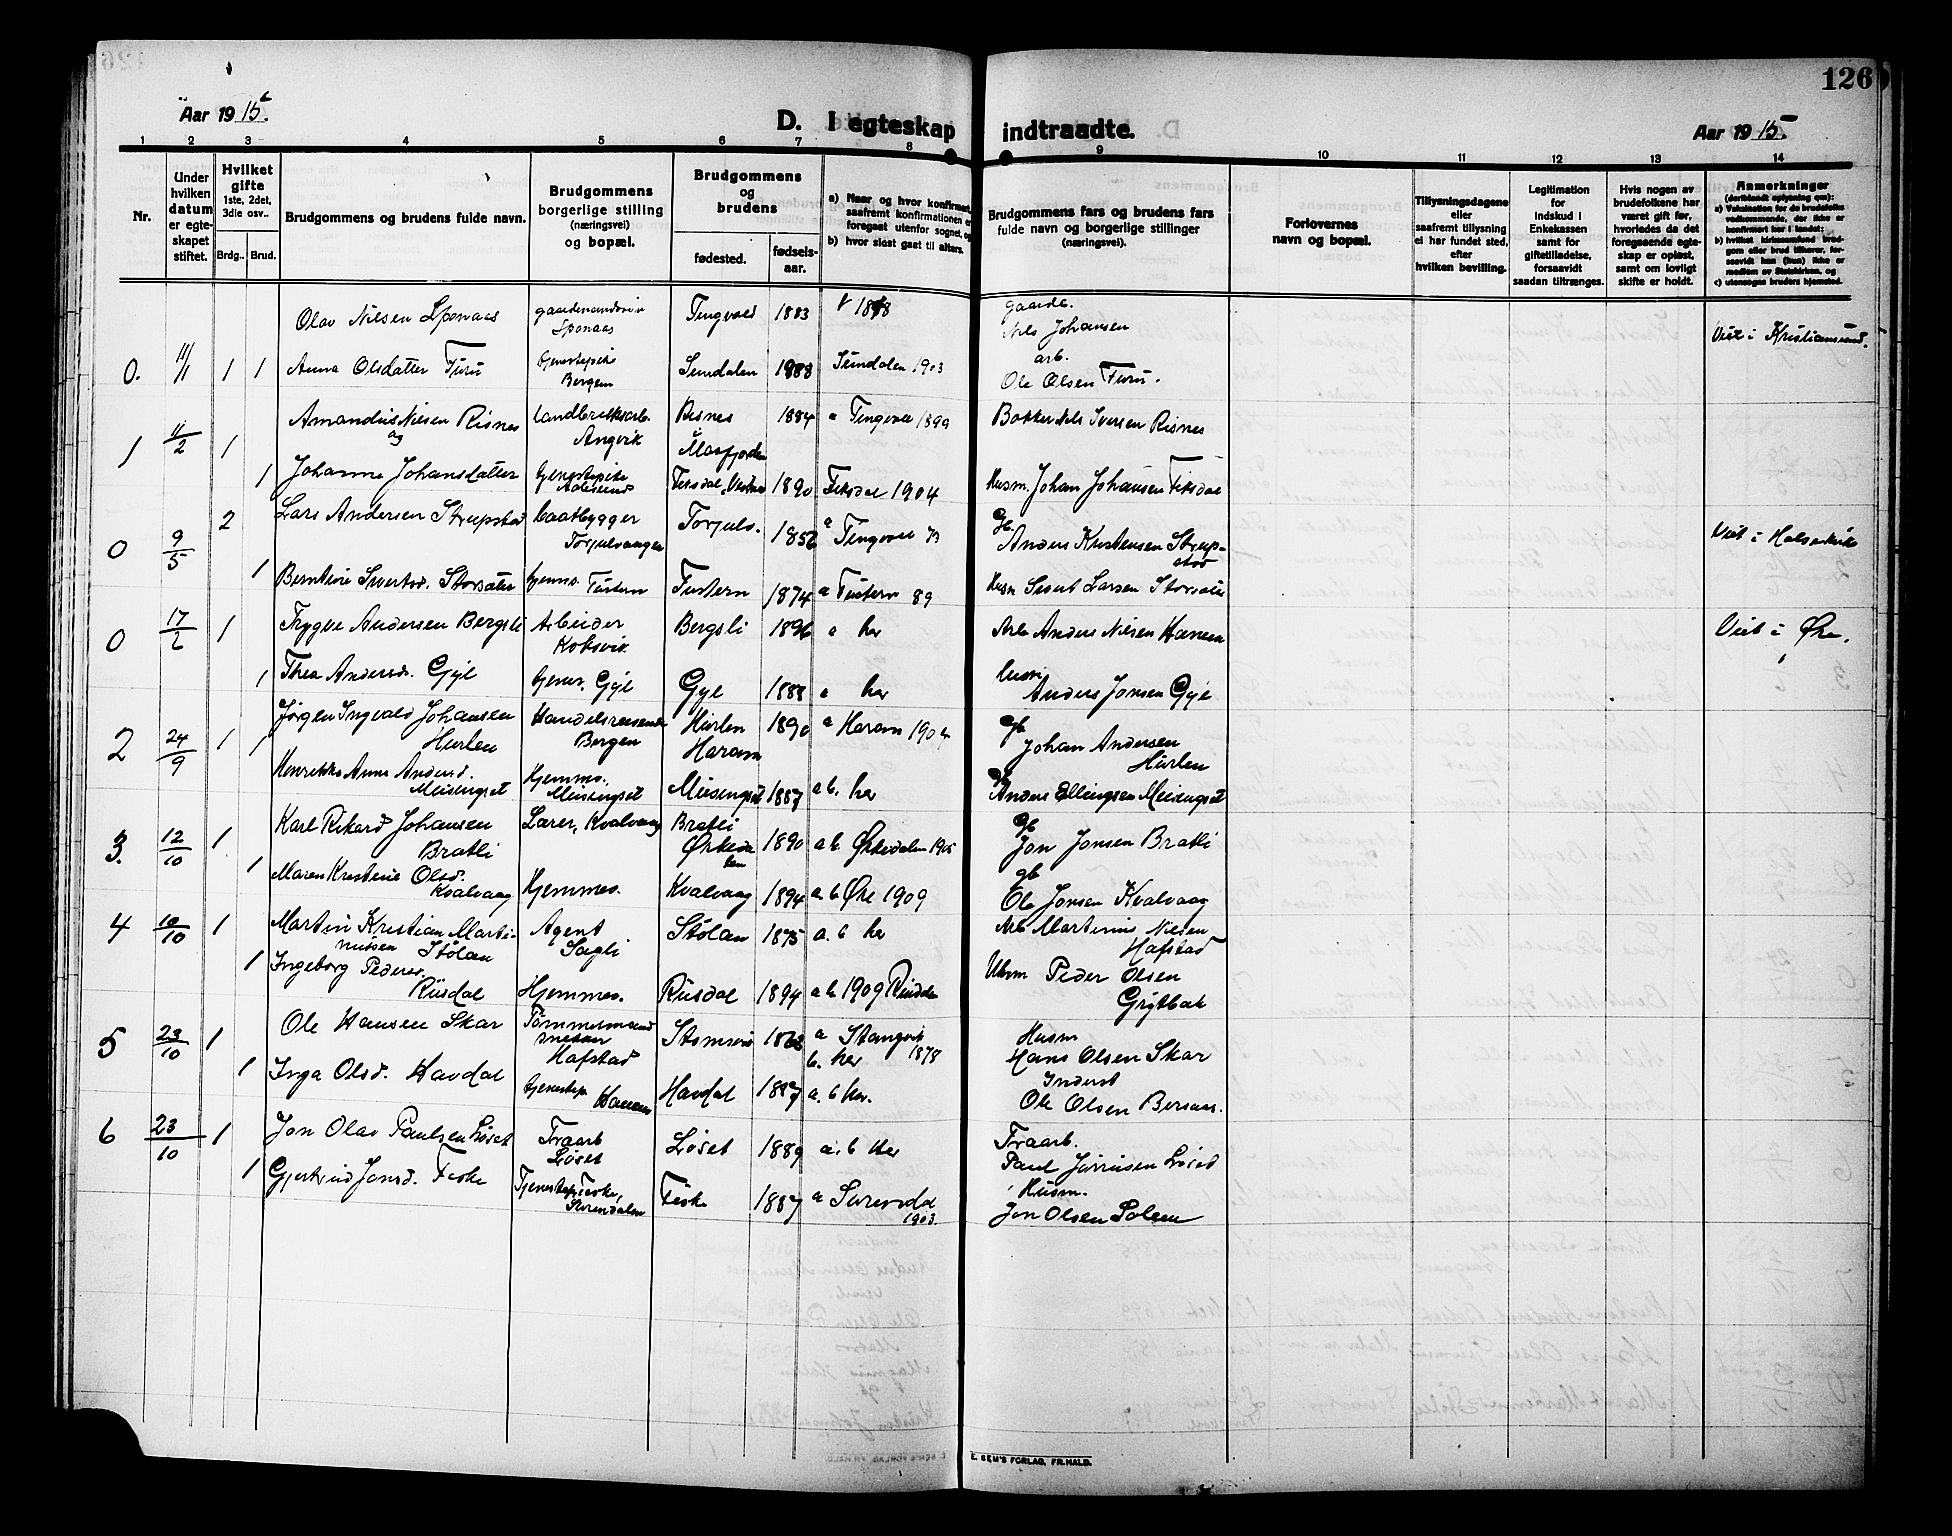 126
Aar 1915.
D. I egteskap indtraadte.
Aar 1915.
1 2 3 4 5 6 7 8 9 10 11 12 13 14
Nr.
Under hvilken datum er egteskapet stiftet.
Hvilket gifte 1ste, 2det, 3die osv..
Brdg.. Brud.
Brudgommens og brudens fulde navn.
Brudgommens borgerlige stilling (næringsvei) og bopæl.
Brudgommens og brudens
fødested. fødsels-aar.
a) Naar og hvor konfirmert, saafremt konfirmationen er foregaat utenfor sognet, og
b) hvor sidst gaat til alters.
Brudgommens fars og brudens fars fulde navn og borgerlige stillinger (næringsvei).
Forlovernes navn og bopæl.
Tillysningsdagene eller saafremt tillysning ei har fundet sted, efter hvilken bevilling.
Legitimation for indskud i Enkekassen samt for giftetilladelse, forsaavidt saadan tiltrænges.
Hvis nogen av brudefolkene har været gift før, hvorledes da det foregaaende egteskap er opløst, samt om lovligt skifte er holdt.
Anmerkninger (deriblandt oplysning om):
a) Vaksination for de brudefolks vedkommende, der ikke er konfirmert her i landet;
b) hvilket kirkesamfund brudgom eller brud tilhører, forsaavidt han (hun) ikke er medlem av Statskirken, og
c) utensogns bruders hjemsted.
Olav Nilsen Sponaas Sponaas Tingvold 1883 gaardb. Nils Johansen Viet i Kristiansund.
0. 11/1 1 1 Anna Olsdatter Furu tjenestepike Bergem Sundalen 1888 Sundalen 1903 arb. Ole Olsen Furu.
1 11/2 1 Amandus Nilsen Risnes og Landbruksarb. Angvik Risnes i Masfjorden 1884 a Tingvold 1899 Nils Iversen Risnes
1 Johanne Johansdatter tjenestepike Fiksdal, Vestnes 1890 Fiksdal 1904 Husm. Johan Johansen Fiksdal
0 9/5 2 Lars Andersen Strupstad Baatbygger Torjulvaagen Torjulv. a Tingvold 73 gb Anders Kristensen Strupstad Viet i Halsevik
1 Berntine Sivertsd. Storsæter hjemme. Tustern Tustern 1874 a Tustern 89 Husm Sivert Larsen Storsæter
0 17/2 1 Trygve Andersen Bergsli Arbeider Koksvik Bergsli 1896 a her Arb Anders Nilsen Hanem Viet i Øre.
1 Thea Andersd. Gyl Gyl 1888 a her Husm Anders Jonsen Gyl
2 24/9 1 1 Jørgen Ingvald Johansen Hurlen Handelsreisende Bergen Hurlen Haram 1890 a Haram 1904 gb Johan Andersen Hurlen
Henrikke Anna Andersd. Meisingset Hjemme. Meisingset Meisingset 1887 a b. her gb Anders Ellingsen Meisingset
3. 12/10 1 Karl Rikard Johansen Bratli Lærer, Kvalvaag Bratli Ørkedalen 1890 a b Ørkedalen 1905 gb Jon Jonsen Bratli
1 Maren Kristine Olsd. Kvalvaag Hjemmev. Kvalvaag 1894 a. b Øre 1909 gb Ole Jonsen Kvalvaag
4 16/10 1 Martin Kristian Martinussen Stølan Agent Sagli Stølan 1875 a. b her Arb Martinus Nilsen Hafstad
1 Ingeborg Peders. Rusdal Hjemmev. Rusdal 1894 a b 1909 Peder Olsen Grytbak
5 23/10 1 Ole Hansen Skar Tømmermand snekker Hafstad Stomsvik 1863 a Stangvik 1878 b. her Husm Hans Olsen Skar
1 Inga Olsd. Havdal tjenestep. Hanem Havdal 1887 a. b her. Inderst Ole Olsen
6 23/10 1 Jon Olav Paulsen Løset Traarb Løset Løset 1889 a. b Her Traarb. Paul Løset
1 Gjertrud Jonsd. Feske Tjenestep. Feske, Surendalen Feske 1887 a Surendal 1903 Husm. Jon Olsen Solem
E. SEM'S FORLAG, FR.HALD.